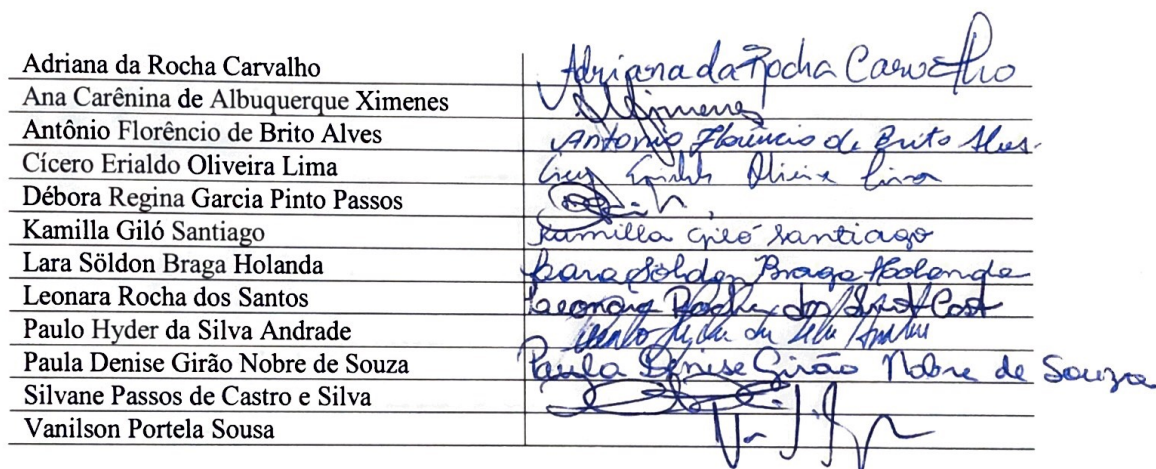 Adriana da Rocha Carvalho Adriana da Rocha Carvalho
Ana Carênina de Albuquerque Ximenes Ximenes
Antônio Florêncio de Brito Alves Antonio Florêncio de Brito Alves
Cícero Erialdo Oliveira Lima Oliveira Lima
Débora Regina Garcia Pinto Passos
Kamilla Giló Santiago Kamilla Giló Santiago
Lara Söldon Braga Holanda Lara Söldon Braga Holanda
Leonara Rocha dos Santos Leonara Rocha dos
Paulo Hyder da Silva Andrade Paulo Hyder da Silva
Paula Denise Girão Nobre de Souza Paula Denise Girão Nobre de Souza
Silvane Passos de Castro e Silva
Vanilson Portela Sousa